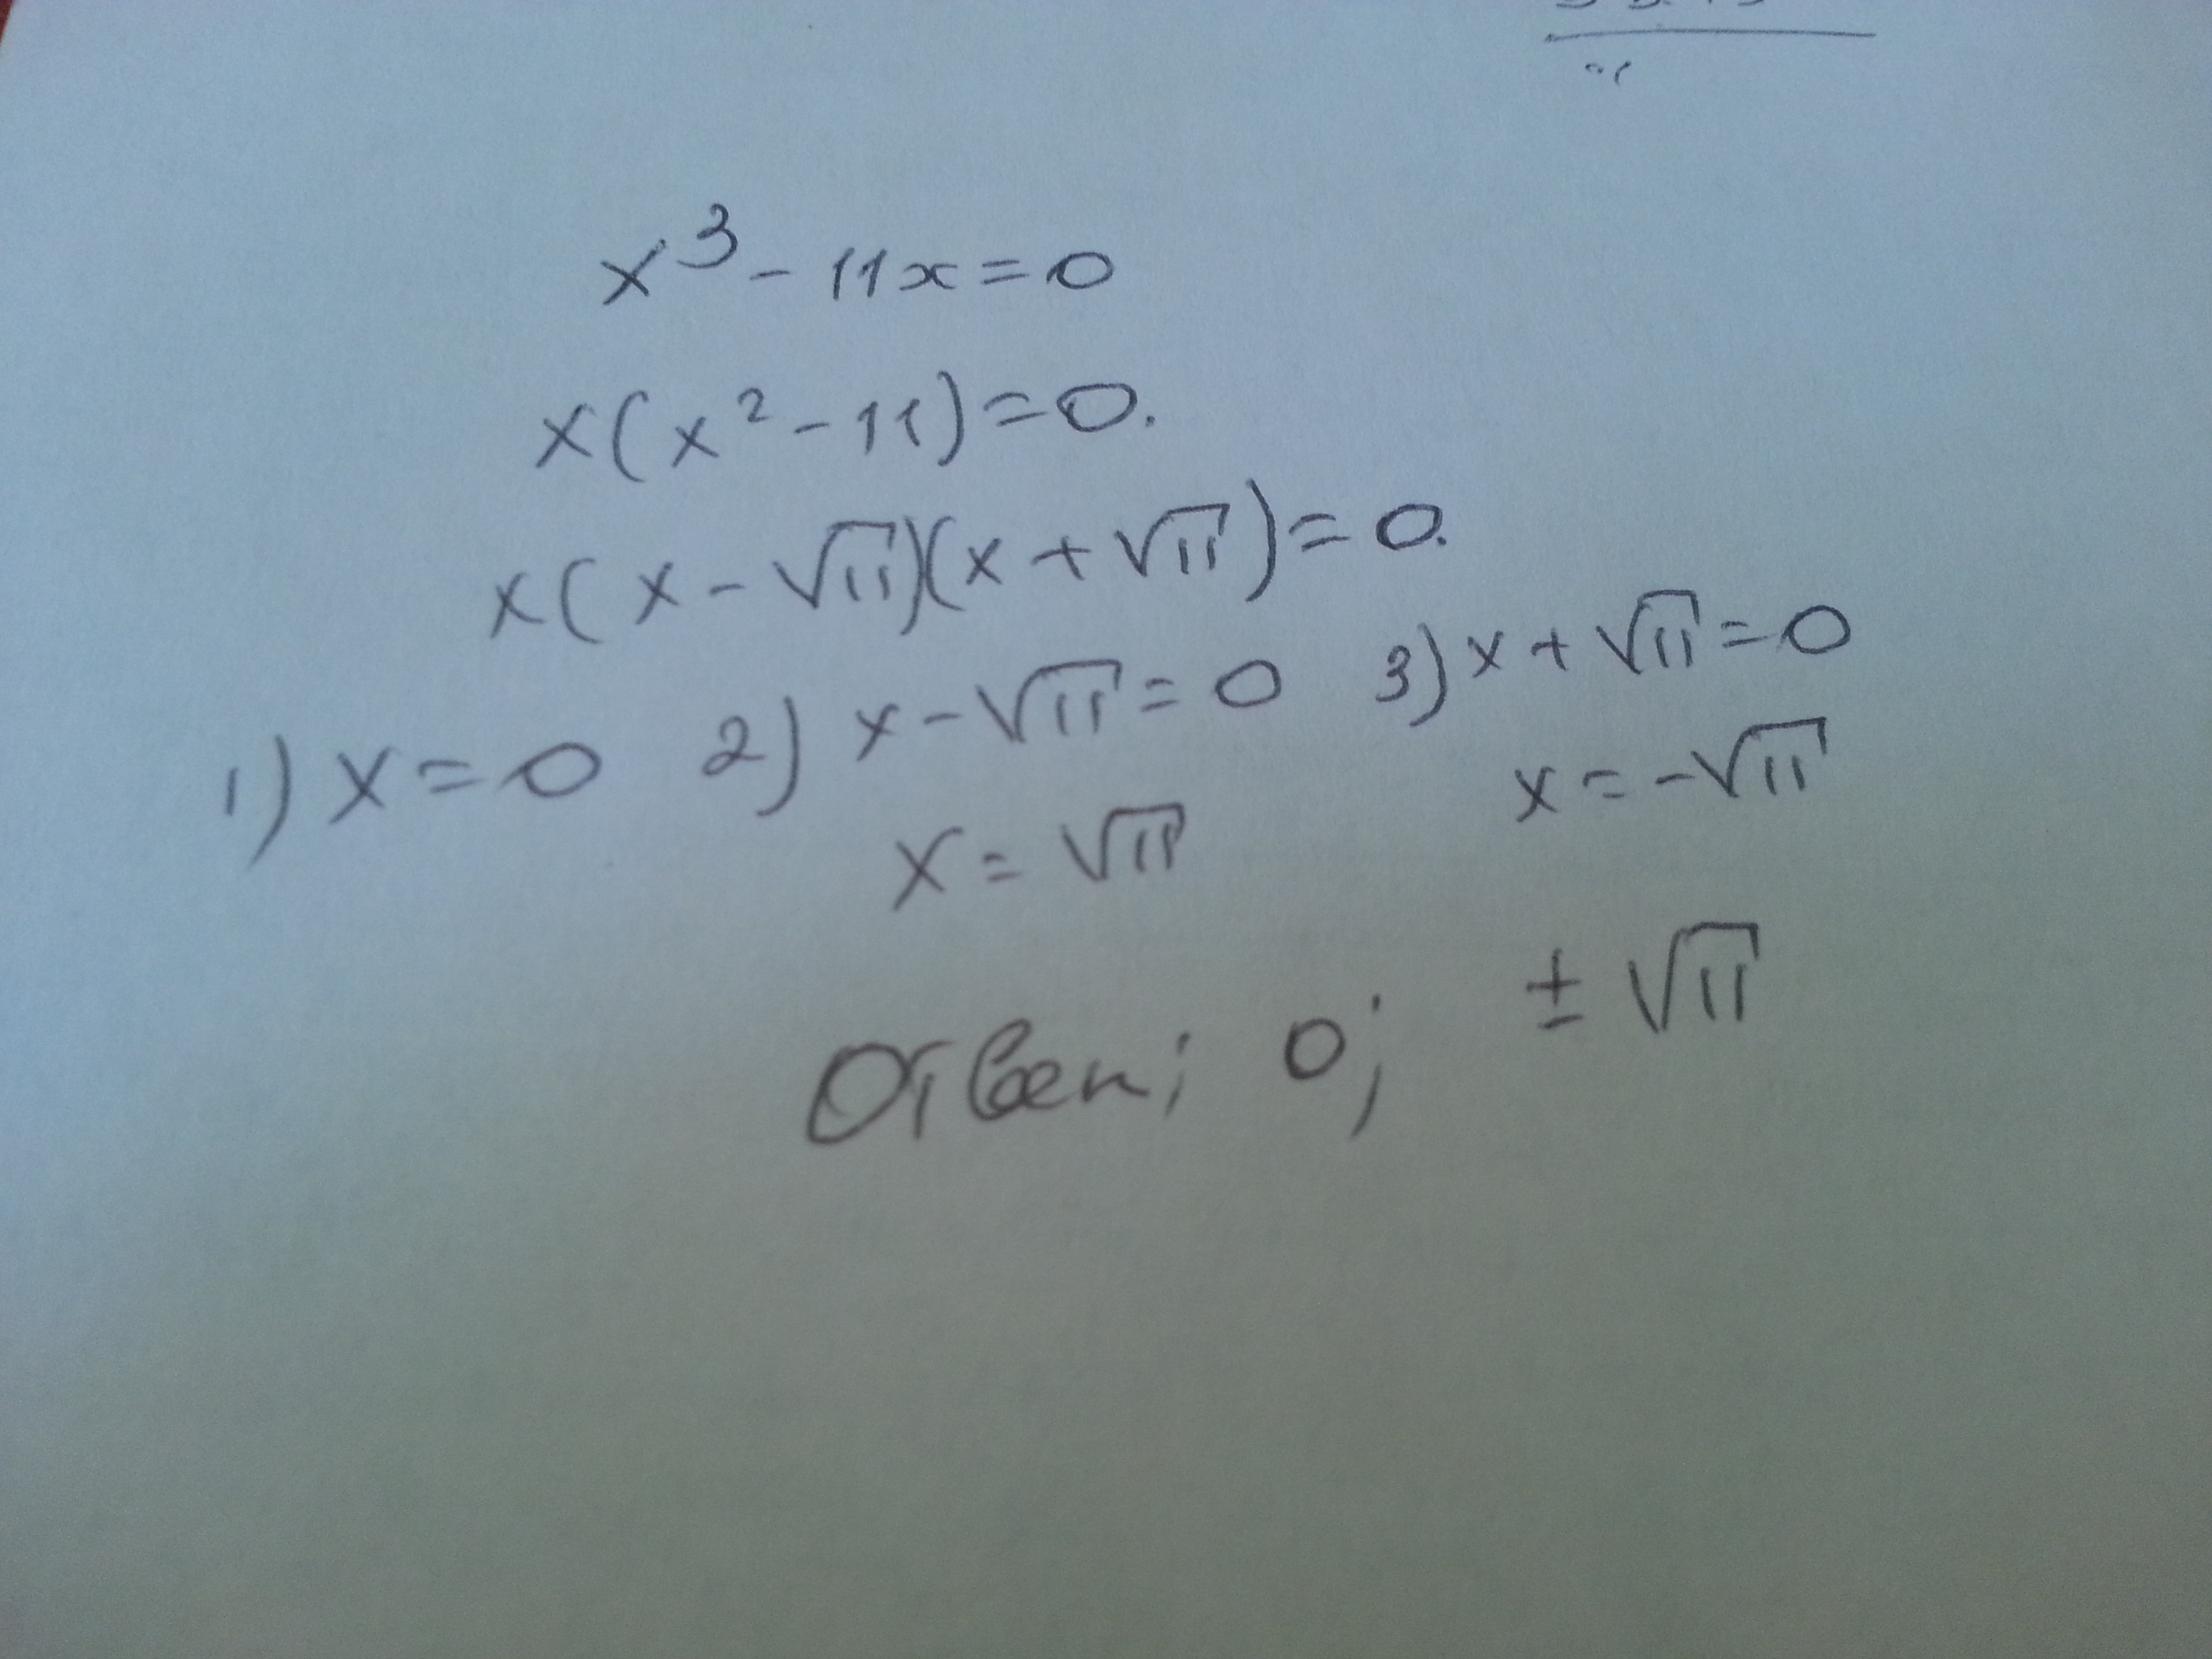 x³ - 11x = 0
x(x² - 11) = 0.
x(x - √11)(x + √11) = 0.
1) x = 0 2) x - √11 = 0 3) x + √11 = 0
x = √11 x = -√11
Ответ; 0; ± √11